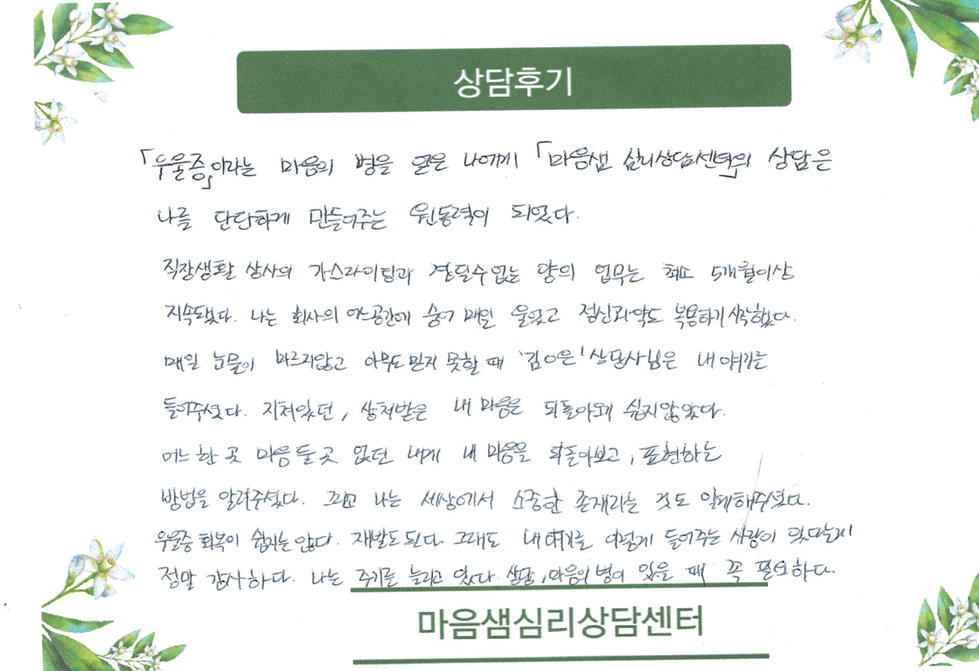 상담후기
「우울증」이라는 마음의 병을 얻은 나에게 「마음샘 심리상담센터」의 상담은
나를 단단하게 만들어주는 원동력이 되었다.
직장생활 상사의 가스라이팅과 감당할수없는 양의 업무는 최소 5개월이상
지속됐다. 나는 회사의 공간에 숨어 매일 울었고 정신과약도 복용하기시작했다.
매일 눈물이 마르지않고 아무도 믿지 못할 때 '김이은' 상담사님은 내 얘기를
들어주셨다. 지쳐있던, 상처받은 내 마음을 되돌아보기 쉽지않았다.
어느 한 곳 마음 둘 곳 없던 내게 내 마음을 되돌아보고, 표현하는
방법을 알려주셨다. 그리고 나는 세상에서 소중한 존재라는 것도 일깨워주셨다.
우울증 회복이 쉽지는 않다. 재발도 된다. 그래도 내 얘기를 이렇게 들어주는 사람이 있다는게
정말 감사하다. 나는 주기를 늘리고 있다. 상담, 마음의 병이 있을 때 꼭 필요하다.
마음샘심리상담센터